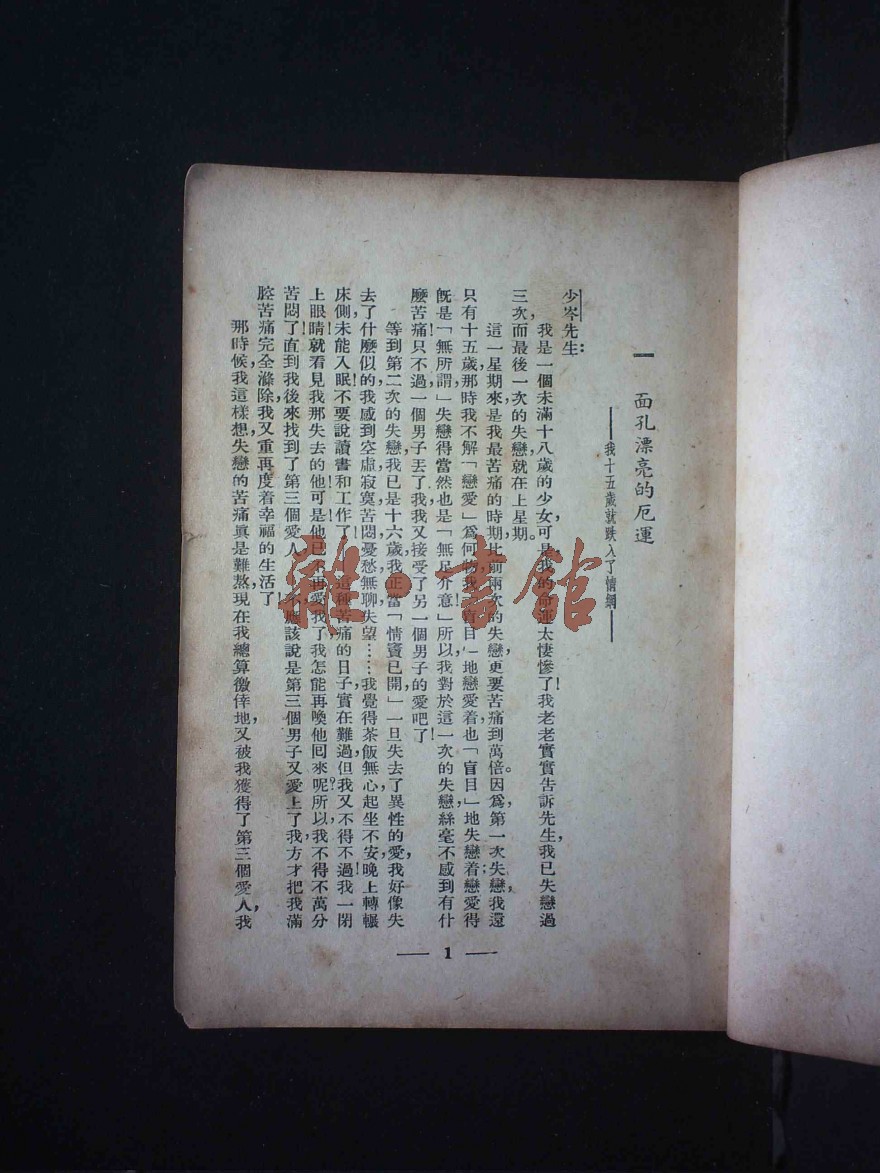 一 面孔漂亮的厄運
——我十五歲就跌入了情網——
少岑先生：
我是一個未滿十八歲的少女，可是我的命運太悽慘了！我老老實實告訴先生，我已失戀過
三次，而最後一次的失戀，就在上星期。
這一星期來，是我最苦痛的時期，比前兩次的失戀，更要苦痛到萬倍。因爲第一次失戀，我還
只有十五歲，那時我不解「戀愛」爲何物，我「盲目」地戀愛着，也「盲目」地失戀着；戀愛得
旣是「無所謂」，失戀得當然也是「無足介意」。所以我對於這一次的失戀，絲毫不感到有什
麼苦痛！只不過一個男子丟了我，我又接受了另一個男子的愛吧了！
等到第二次的失戀，我已是十六歲，我正當「情竇已開」，一旦失去了異性的愛，我好像失
去了什麼似的，我感到空虛，寂寞，苦悶，憂愁，無聊，失望……我覺得茶飯無心，起坐不安，晚上轉輾
床側，未能入眠，不要說讀書和工作了！這種苦痛的日子，實在難過，但我又不得不過！我一閉
上眼睛，就看見我那失去的他，可是他已不再愛我了，我怎能再喚他囘來呢？所以我不得不萬分
苦悶了！直到我後來找到了第三個愛人，不，應該說是第三個男子又愛上了我，方才把我滿
腔苦痛，完全滌除，我又重再度着幸福的生活了！
那時候，我這樣想：失戀的苦痛眞是難熬，現在我總算徼倖地，又被我獲得了第三個愛人，我
— 1 —
雜·書館